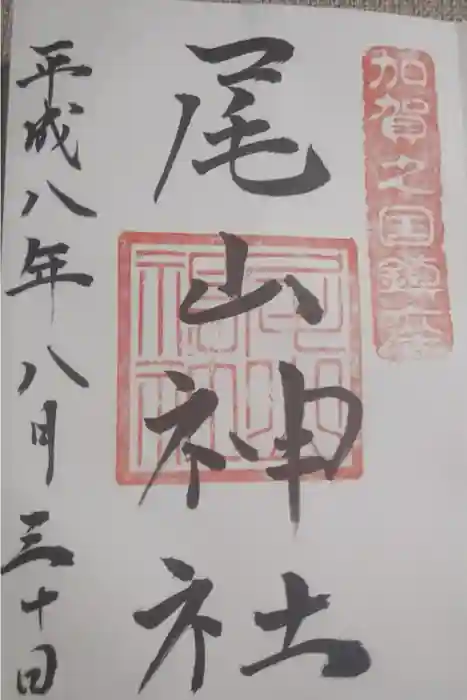 加賀之国鎮座
尾山神社
平成八年八月三十日